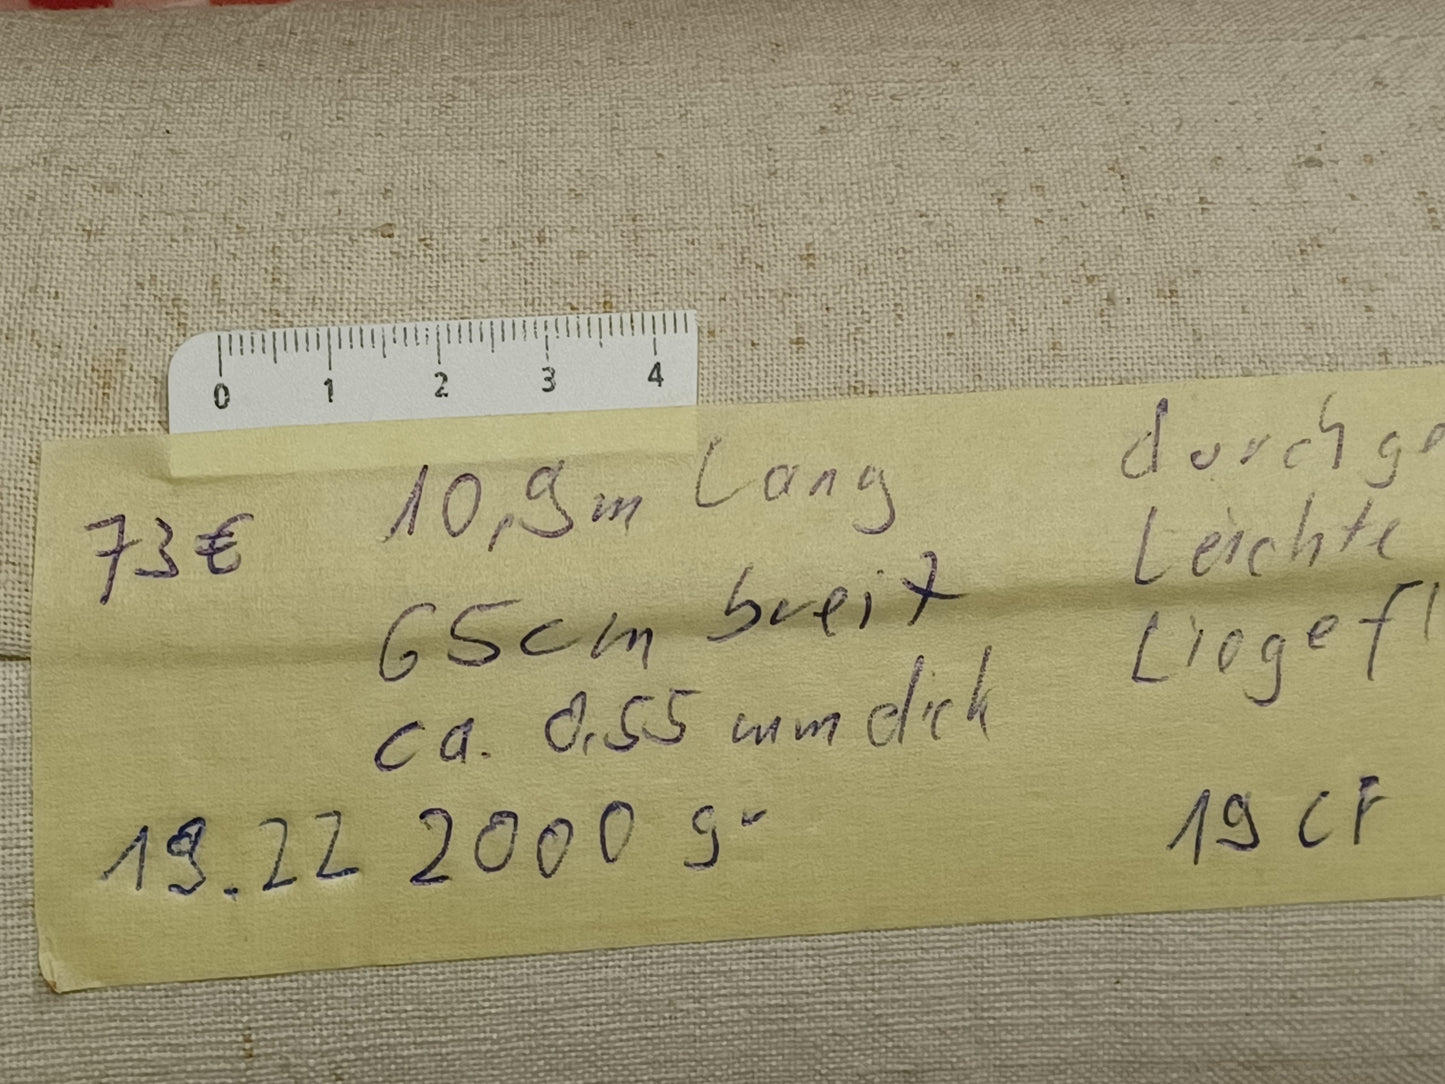 0 1 2 3 4
73€ 10,9m lang
65cm breit
ca. 0,55 mm dick
19.22 2000 gr
durchge
Leichte
Liegefl
19 CF